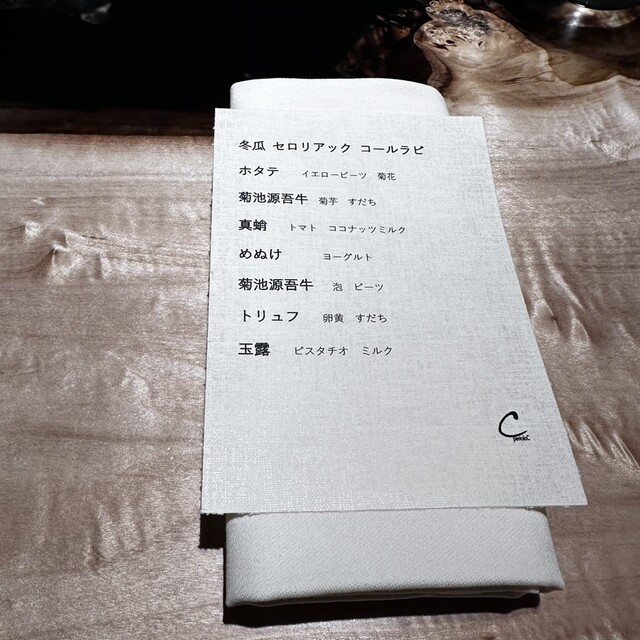 冬瓜 セロリアック コールラビ
ホタテ イエロービーツ 菊花
菊池源吾牛 菊芋 すだち
真蛸 トマト ココナッツミルク
めぬけ ヨーグルト
菊池源吾牛 泡 ビーツ
トリュフ 卵黄 すだち
玉露 ピスタチオ ミルク
C